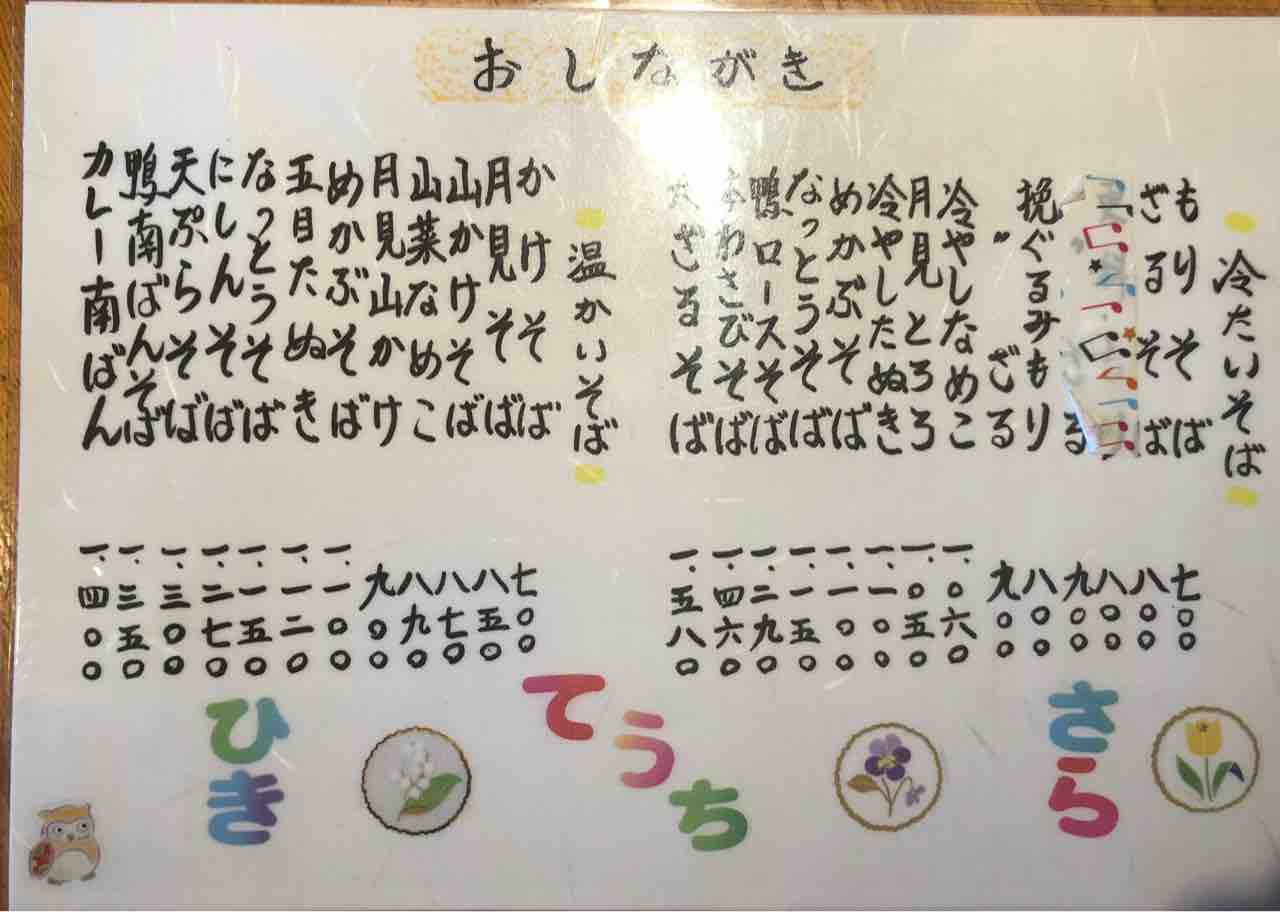 おしながき
冷たいそば
もりそば 七〇〇
ざるそば 八〇〇
八〇〇
る 九〇〇
挽ぐるみもり 八〇〇
〃 ざる 九〇〇
冷やしなめこ 一、〇六〇
月見とろろ 一、〇五〇
冷やしたぬき 一、一〇〇
めかぶそば 一、一〇〇
なっとうそば 一、一五〇
鴨ロースそば 一、二九〇
本わさびそば 一、四六〇
大ざるそば 一、五八〇
温かいそば
かけそば 七〇〇
月見そば 八五〇
山かけそば 八七〇
山菜なめこ 八九〇
月見山かけ 九〇〇
めかぶそば 一、一〇〇
五目たぬき 一、一二〇
なっとうそば 一、一五〇
にしんそば 一、二七〇
天ぷらそば 一、三〇〇
鴨南ばんそば 一、三五〇
カレー南ばん 一、四〇〇
さら
てうち
ひき